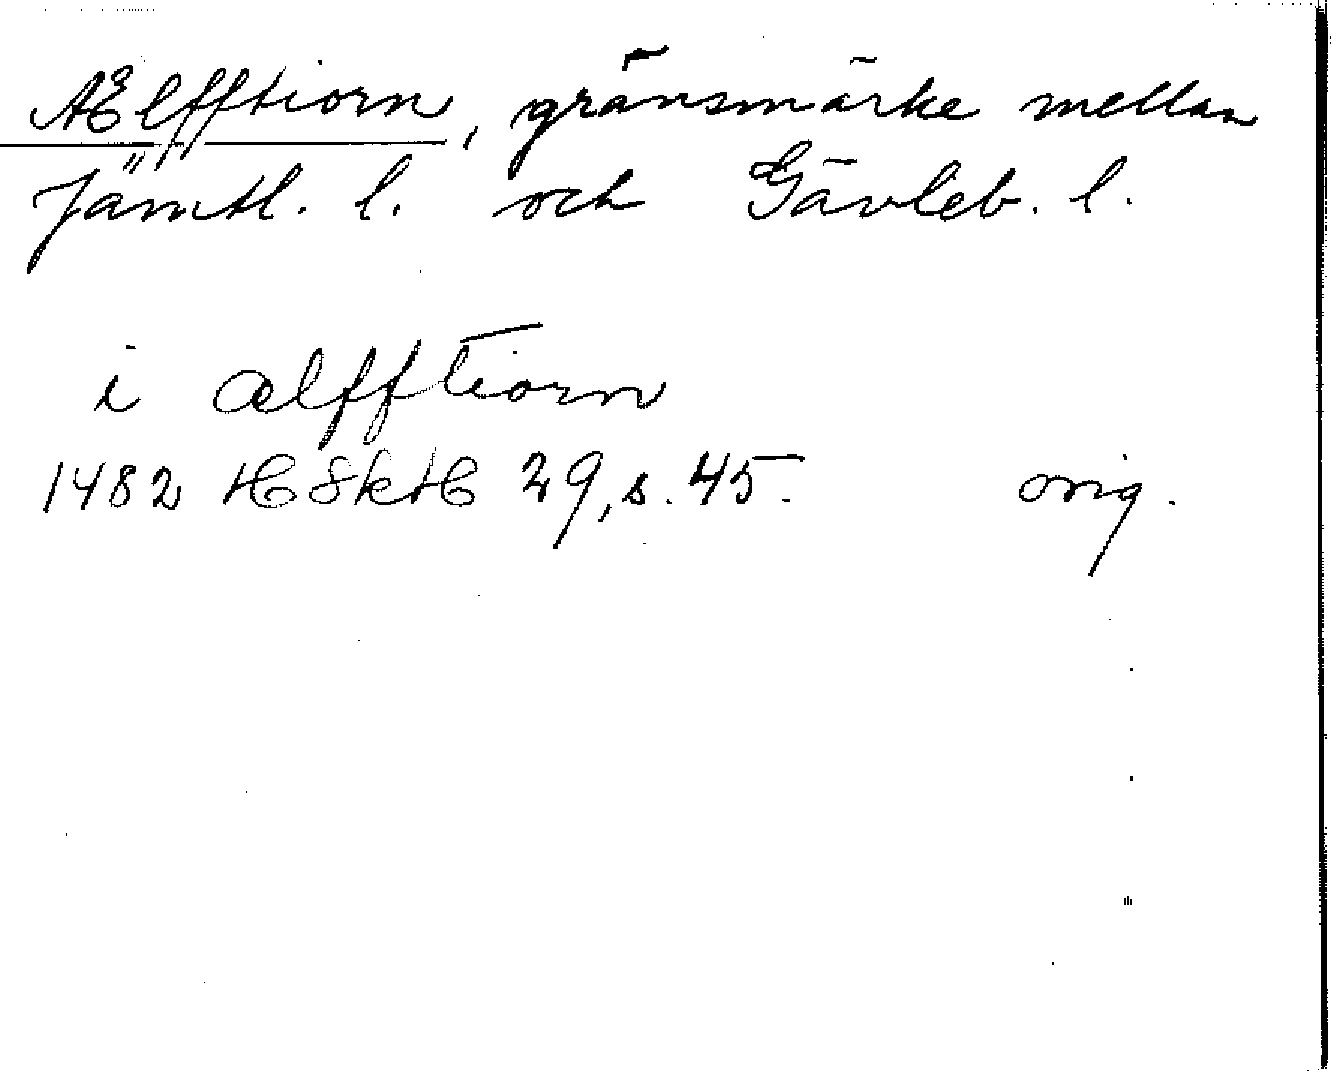 Ælfftiorn, gränsmärke mellan
Jämtl. l. och Gävleb. l.
i ælfftiorn
1482 HSkH 29, s. 45. orig.